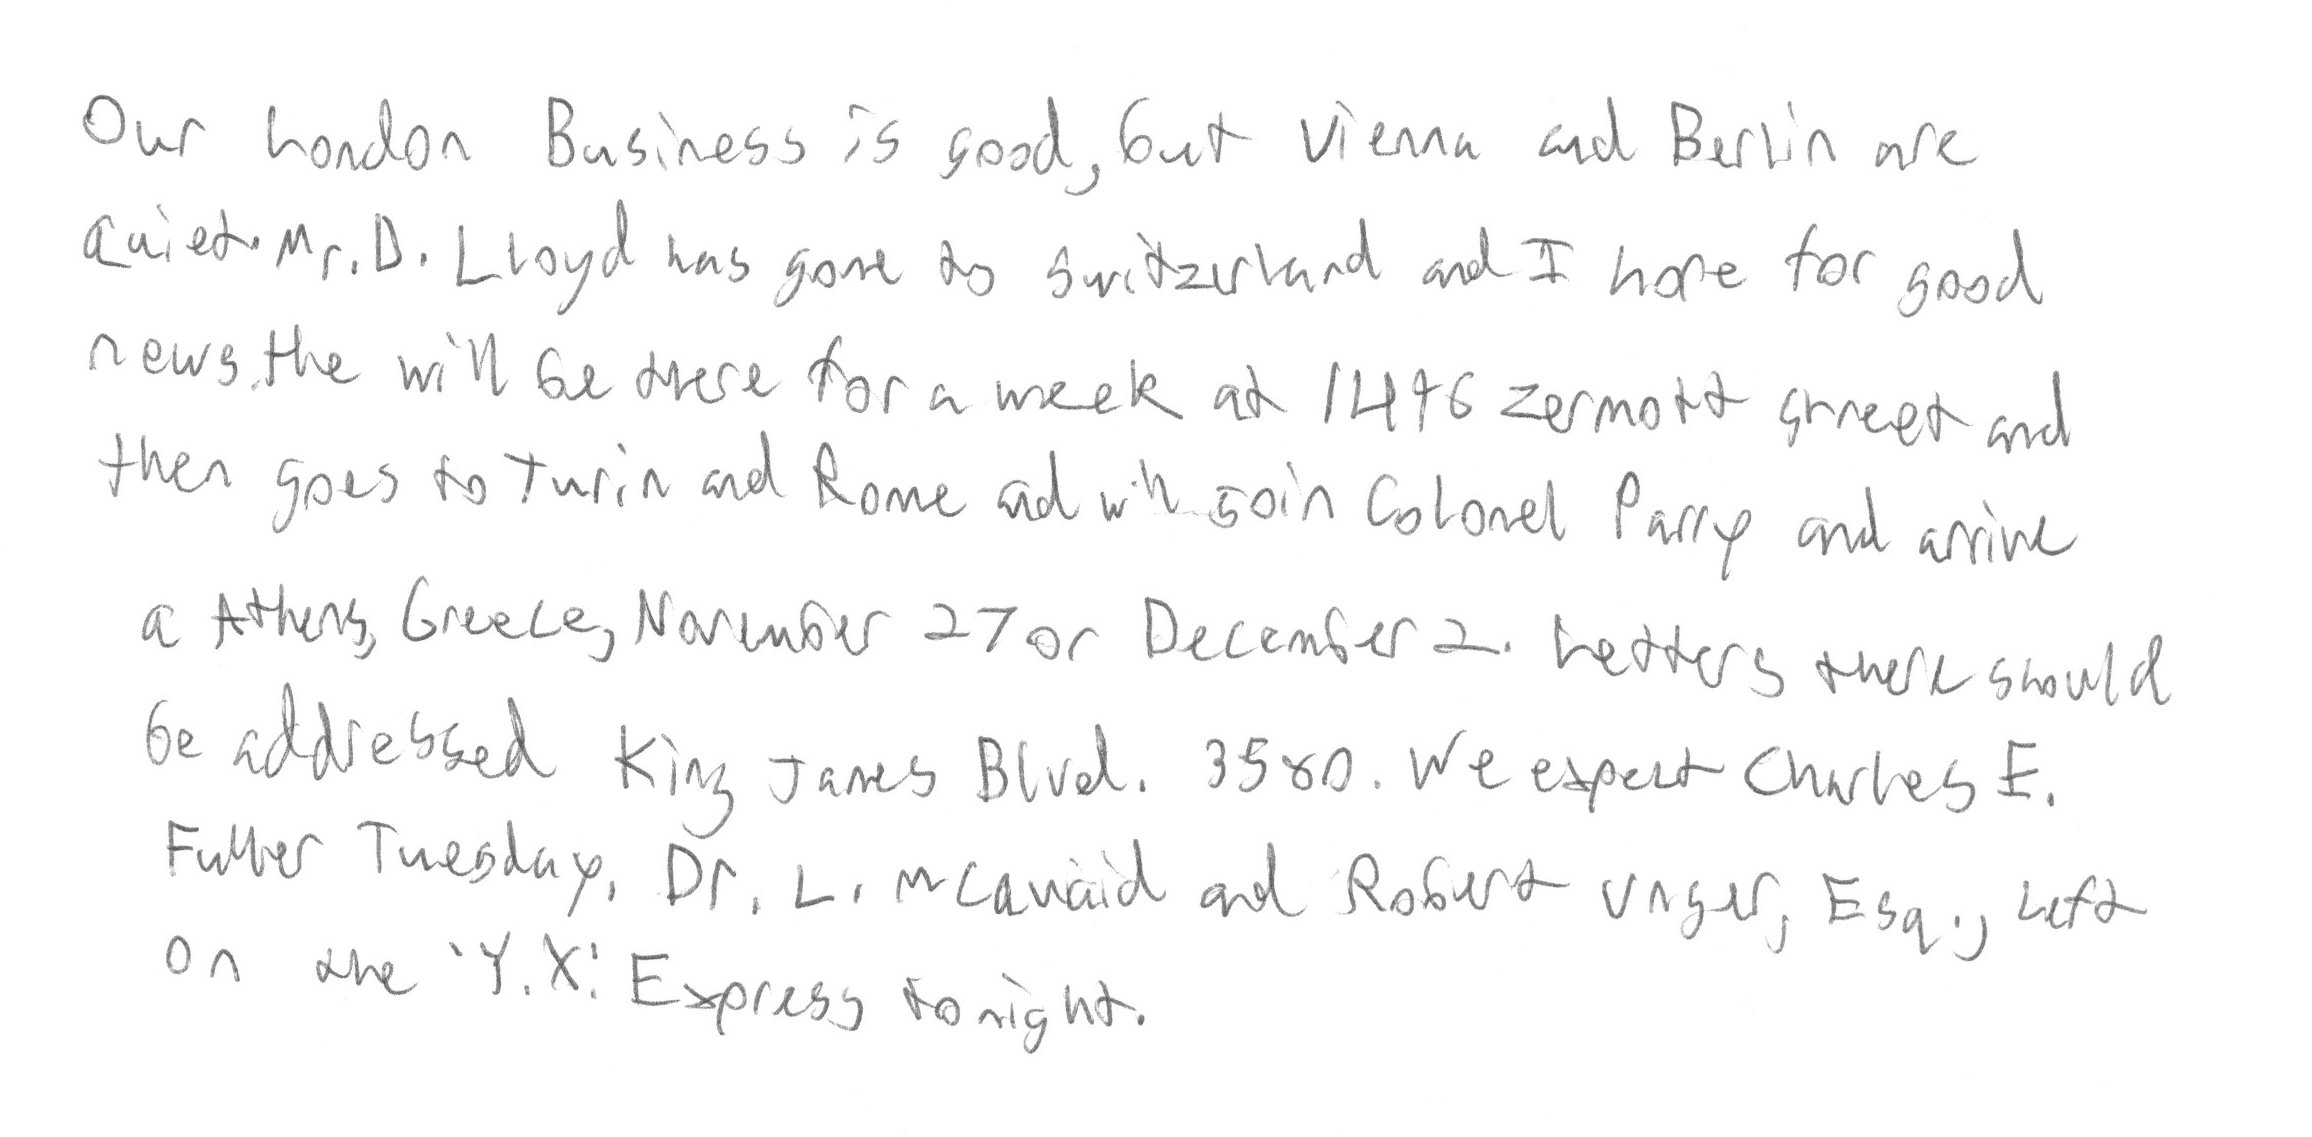 Our London Business is good, but Vienna and Berlin are
quiet. Mr. D. Lloyd has gone to Switzerland and I hope for good
news. the will be there for a week at 1496 Zermott street and
then goes to Turin and Rome and will join Colonel Parry and arrive
a Athens, Greece, November 27 or December 2. Letters there should
be addressed King James Blvd. 3580. We expect Charles E.
Fuller Tuesday. Dr. L. McQuaid and Robert Unger, Esq., left
on the 'Y.X.' Express tonight.